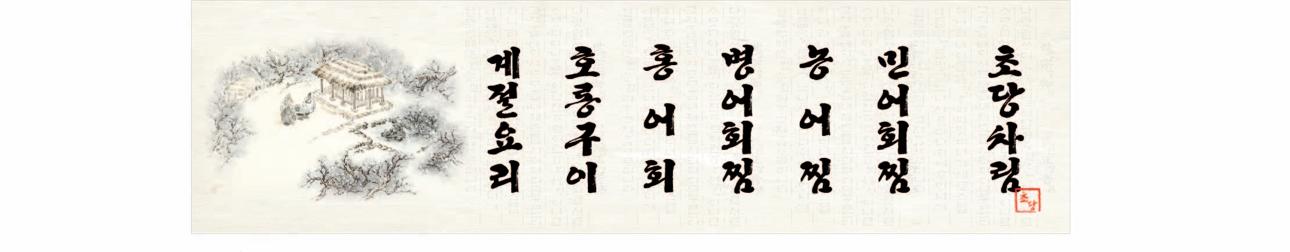 초당차림
초당
민어회찜
능어찜
병어회찜
홍어회
호롱구이
계절요리